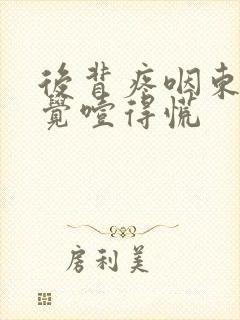 後背疼咽東
覺噎得慌
房利美